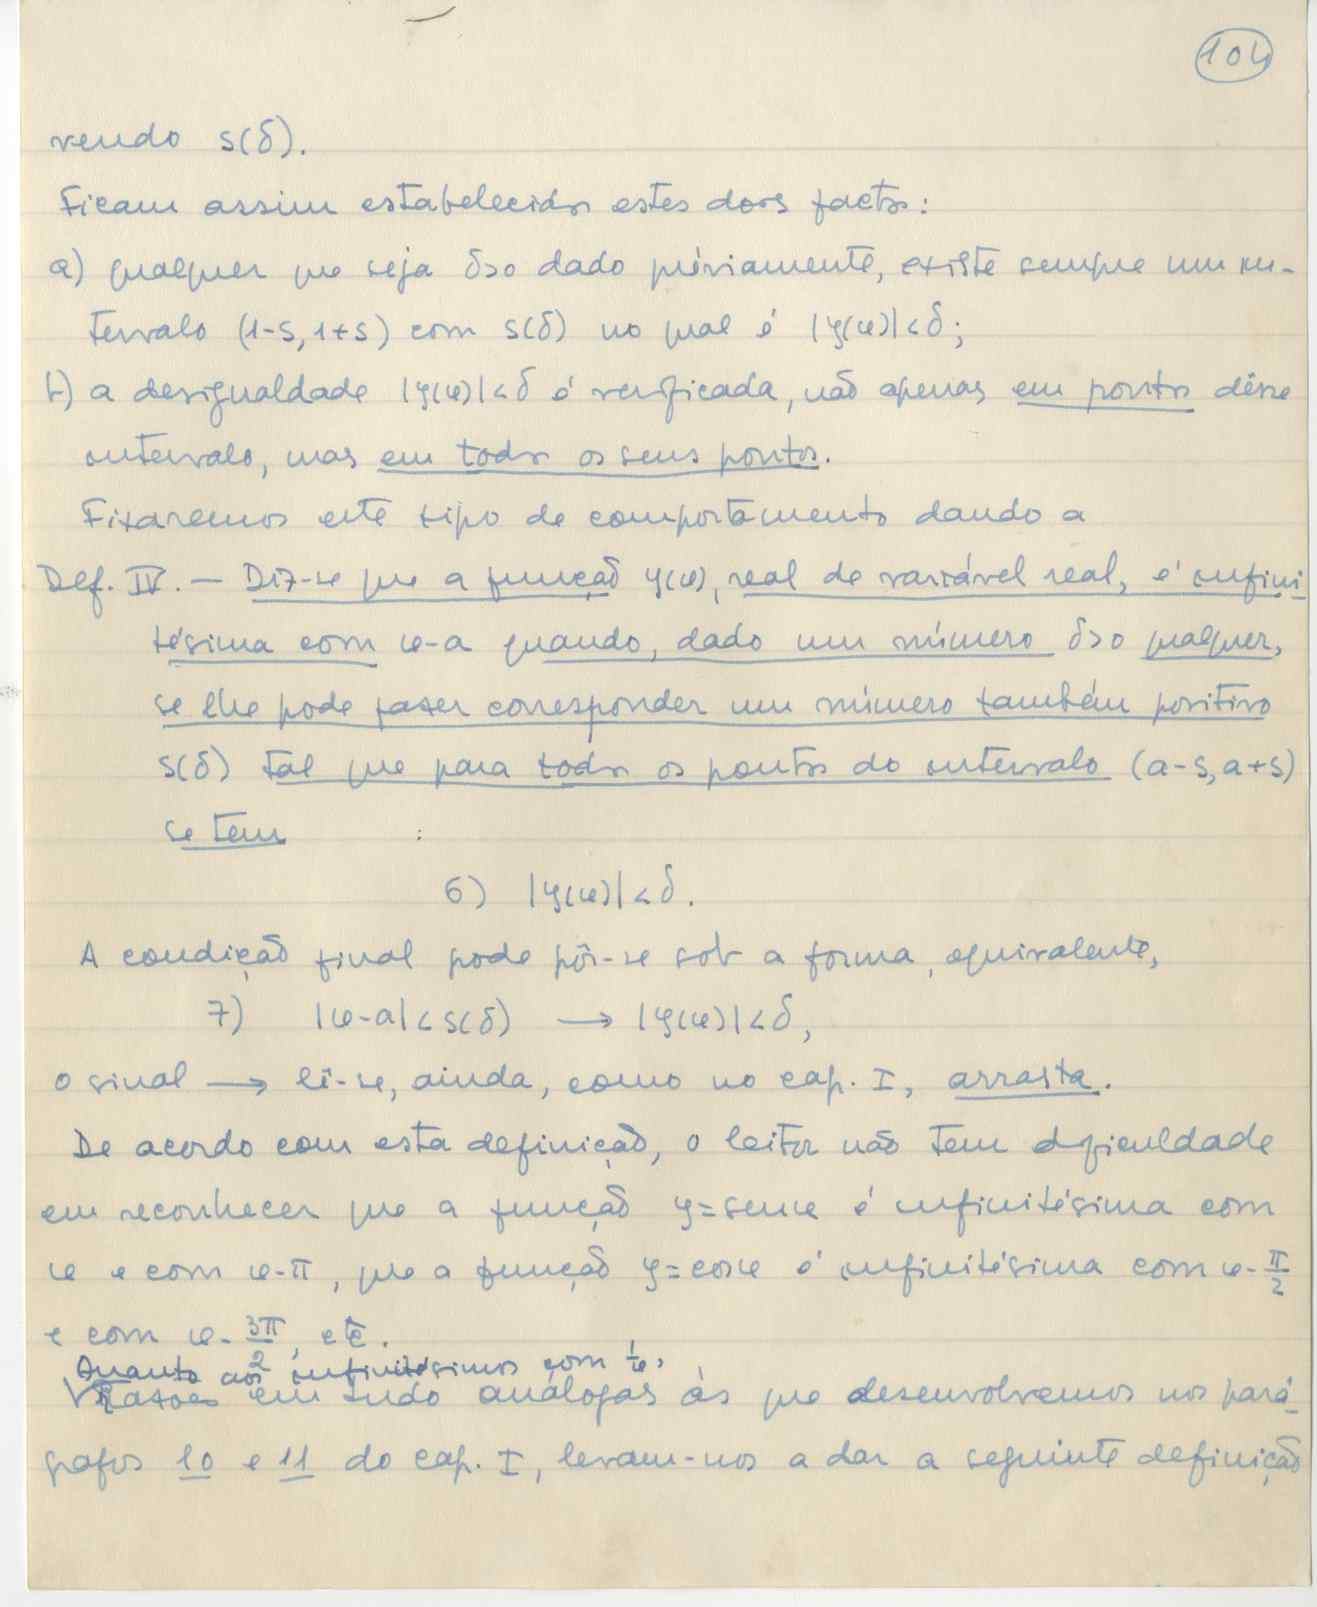 104
vendo s(δ).
Ficam assim estabelecidos estes dois factos:
a) qualquer que seja δ>0 dado préviamente, existe sempre um in-
tervalo (1-s, 1+s) com s(δ) no qual é |y(x)|<δ;
b) a desigualdade |y(x)|<δ é verificada, não apenas em pontos dêsse
intervalo, mas em todos os seus pontos.
Fixaremos este tipo de comportamento dando a
Def. IV. — Diz-se que a função y(x), real de variável real, é infini-
tésima com x-a quando, dado um número δ>0 qualquer,
se lhe pode fazer corresponder um número também positivo
s(δ) tal que para todos os pontos do intervalo (a-s, a+s)
se tem :
6) |y(x)|<δ.
A condição final pode pôr-se sob a forma, equivalente,
7) |x-a|<s(δ) → |y(x)|<δ,
o sinal → lê-se, ainda, como no cap. I, arrasta.
De acordo com esta definição, o leitor não tem dificuldade
em reconhecer que a função y=senx é infinitésima com
x e com x-π, que a função y=cosx é infinitésima com x-π/2
e com x-3π/2, etc.
Quanto aos infinitésimos com 1/x,
Razões em tudo análogas às que desenvolvemos nos pará-
grafos 10 e 11 do cap. I, levam-nos a dar a seguinte definição